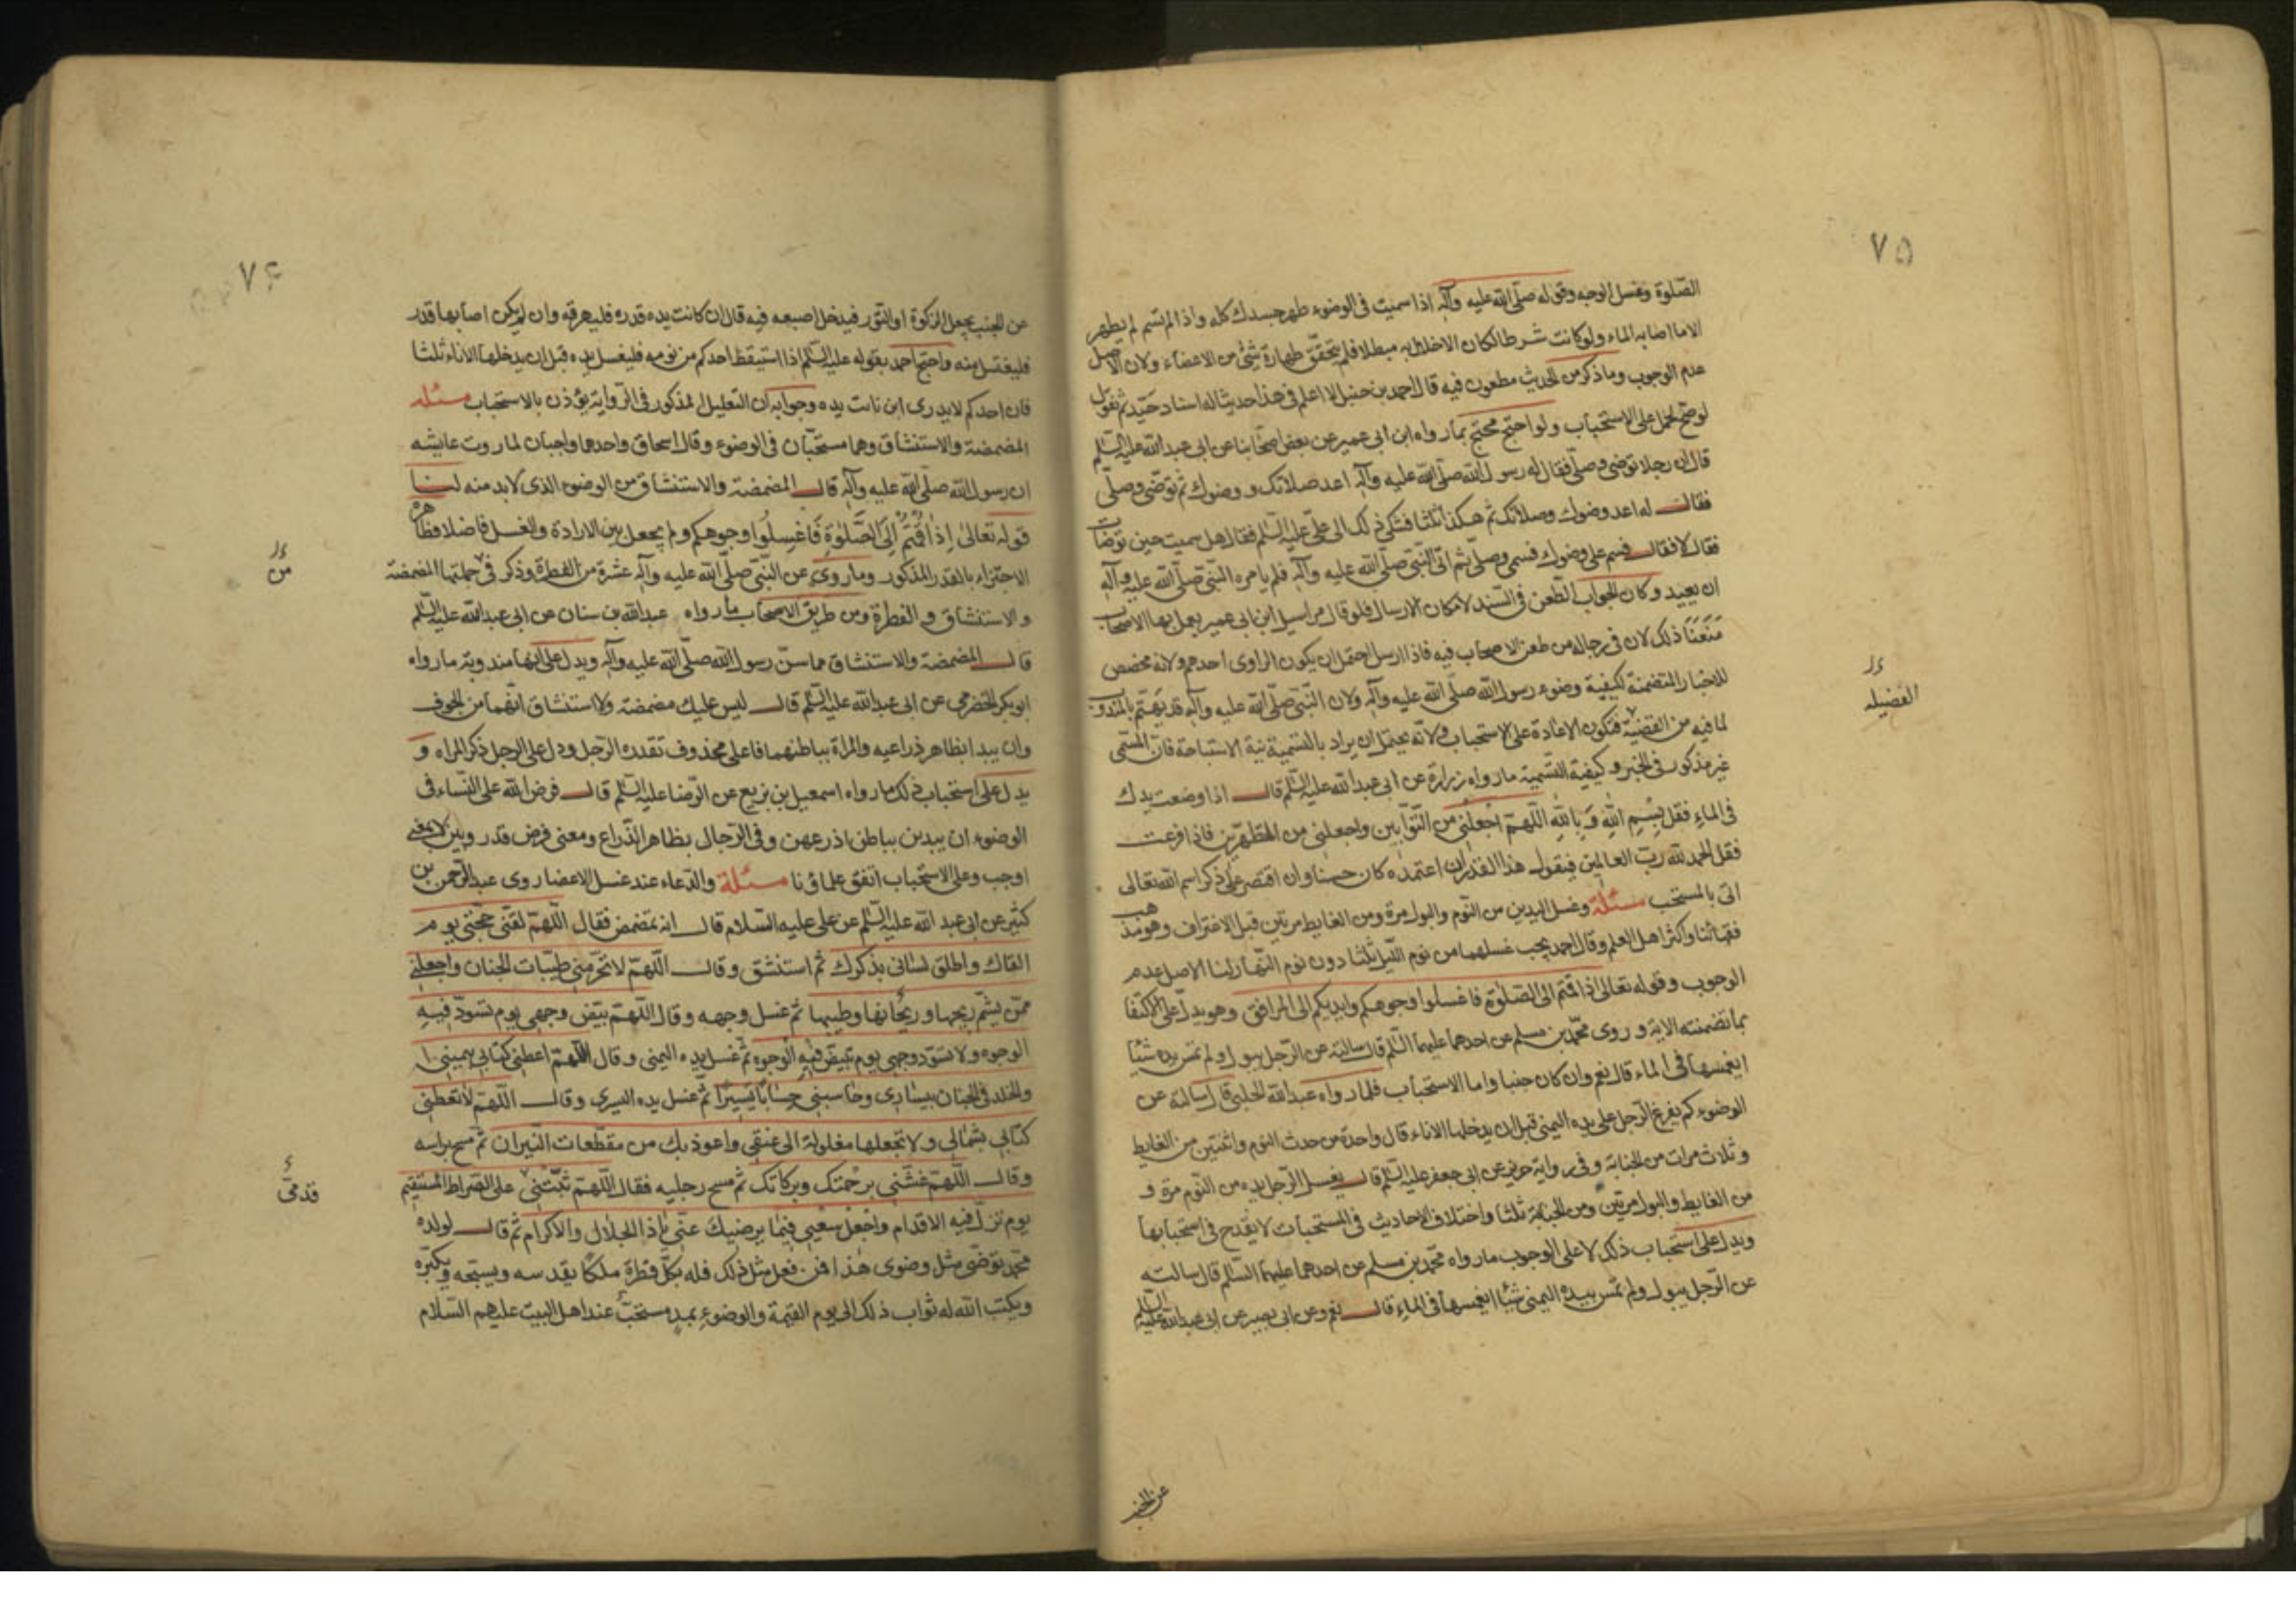 ٧۵
الصلوة وغسل الوجه وقوله صلّى الله عليه وآله اذا سميت فى الوضوء طهر جسدك كله واذا لم تسم لم يطهر
الا ما اصابه الماء ولو كانت شرطا لكان الاخلال به مبطلا فلم يتحقق طهارة شئ من الاعضاء ولان الاصل
عدم الوجوب وما ذكر من الحديث مطعون فيه قال احمد بن حنبل لا اعلم فى هذا حديثا له اسناد جيّد ثم نقول
لو صح لحمل على الاستحباب ولو احتج محتج بما رواه ابن ابى عمير عن بعض اصحابنا عن ابى عبد الله عليه السّلم
قال ان رجلا توضى وصلّى فقال له رسول الله صلّى الله عليه وآله اعد صلاتك و وضوءك ثم توضى وصلّى
فقال له اعد وضوءك وصلاتك ثم هكذا ثلثا فشكى ذلك الى على عليه السّلم فقال هل سميت حين توضات
فقال لا فقال فسم على وضوءك فسمى وصلّى ثم اتى النّبى صلّى الله عليه وآله فلم يامره النّبى صلّى الله عليه وآله
ان يعيد وكان الجواب الطّعن فى السّند لامكان الارسال فلو قال مراسيل ابن ابى عمير يعمل بها الاصحاب
مَنَعْنَا ذلك لان فى رجاله من طعن الاصحاب فيه فاذا ارسل احتمل ان يكون الراوى احدهم ولانه مخصص
للاخبار المتضمنة لكيفية وضوء رسول الله صلّى الله عليه وآله ولان النّبى صلّى الله عليه وآله قد يهتم بالمندوب
لما فيه من القضيّة فتكون الاعادة على الاستحباب ولانّه يحتمل ان يراد بالتسمية نية الاستباحة فان المسمّى
غير مذكور فى الخبر وكيفية التسمية ما رواه زرارة عن ابى عبد الله عليه السّلم قال اذا وضعت يدك
فى الماء فقل بِسْمِ اللهِ وَ بِاللهِ اللّهمّ اجْعَلْنى من التّوّابين واجعلنى من المتطهّرين فاذا فرغت
فقل الحمد لله ربّ العالمين فيقول هذا القدر ان اعتمده كان حسنا وان اقتصر على ذكر اسم الله تعالى
اتى بالمستحب مسئلة وغسل اليدين من النّوم والبول مرة ومن الغايط مرتين قبل الاغتراف وهو مذهب
فقهائنا واكثر اهل العلم وقال احمد يجب غسلهما من نوم اللّيل ثلثا دون نوم النّهار لنا الاصل عدم
الوجوب وقوله تعالى اذا قمتم الى الصّلوة فاغسلوا وجوهكم وايديكم الى المرافق وهو يدل على الاكتفا
بما تضمنته الاية و روى محمّد بن مسلم عن احدهما عليهما السّلم قال سالته عن الرّجل يبول ولم تمس يده شيئا
ايغمسها فى الماء قال نعم وان كان جنبا واما الاستحباب فلما رواه عبد الله الحلبى قال سالته عن
الوضوء كم يفرغ الرّجل على يده اليمنى قبل ان يدخلها الاناء قال واحدة من حدث النوم واثنتين من الغايط
وثلاث مرات من الجنابة وفى رواية حريز عن ابى جعفر عليه السّلم قال يغسل الرّجل يده من النّوم مرة و
من الغايط والبول مرتين ومن الجنابة ثلثا واختلاف الاحاديث فى المستحبات لا يقدح فى استحبابها
ويدل على استحباب ذلك لا على الوجوب ما رواه محمّد بن مسلم عن احدهما عليهما السّلم قال سالته
عن الرّجل يبول ولم تمس بيده اليمنى شيئا ايغمسها فى الماء قال نعم وعن ابى بصير عن ابى عبد الله عليه السّلم
الفضيله
عن الجنب
٧۶
عن الجنب يجعل الركوة او التور فيدخل اصبعه فيه قال ان كانت يده قذرة فليهرقه وان لم يكن اصابها قذر
فليغتسل منه واحتج احمد بقوله عليه السّلم اذا استيقظ احدكم من نومه فليغسل يده قبل ان يدخلها الاناء ثلثا
فان احدكم لا يدرى اين باتت يده وجوابه ان التعليل المذكور فى الرّواية يؤذن بالاستحباب مسئله
المضمضة والاستنشاق وهما مستحبّان فى الوضوء وقال اسحاق واحدهما واجبان لما روت عايشه
ان رسول الله صلّى الله عليه وآله قال المضمضة والاستنشاق من الوضوء الذى لا بد منه لنا
قوله تعالى اِذَا قُمْتُمْ اِلَى الصَّلوٰةِ فَاغْسِلُوا وجوهكم ولم يجعل بين الارادة والغسل فاصلا فظاهره
الاجتزاء بالقدر المذكور وما روى عن النّبى صلّى الله عليه وآله عشرة من الفطرة وذكر فى جملتها المضمضة
والاستنشاق و الفطرة ومن طريق الاصحاب ما رواه عبد الله بن سنان عن ابى عبد الله عليه السّلم
قال المضمضة والاستنشاق مما سنّ رسول الله صلّى الله عليه وآله ويدل على انها مندوبة ما رواه
ابو بكر الحضرمى عن ابى عبد الله عليه السّلم قال ليس عليك مضمضة ولا استنشاق انّهما من الجوف
وان يبدا بظاهر ذراعيه والمراة بباطنهما فاعلى محذوف تقدره الرّجل ودل على الرجل ذكر المراه و
يدل على استحباب ذلك ما رواه اسمعيل بن بزيع عن الرّضا عليه السّلم قال فرض الله على النّساء فى
الوضوء ان يبدين بباطن اذرعهن وفى الرّجال بظاهر الذّراع ومعنى فرض قدر وبين لا بمعنى
اوجب وعلى الاستحباب اتفق علماؤنا مسئلة والدّعاء عند غسل الاعضاء روى عبد الرّحمن بن
كثير عن ابى عبد الله عليه السّلم عن على عليه السّلام قال انه تمضمض فقال اللّهمّ لقّنى حجّتى يوم
القاك واطلق لسانى بذكرك ثم استنشق وقال اللّهمّ لا تحرّمنى طيّبات الجنان واجعلنى
ممّن يشمّ ريحها وريحانها وطيبها ثم غسل وجهه وقال اللّهمّ بيّض وجهى يوم تسودّ فيه
الوجوه ولا تسوّد وجهى يوم تبيضّ فيه الوجوه ثم غسل يده اليمنى وقال اللّهمّ اعطنى كتابى بيمينى
والخلد فى الجنان بيسارى وحاسبنى حِسَابًا يَسِيرًا ثم غسل يده اليسرى وقال اللّهمّ لا تعطنى
كتابى بشمالى ولا تجعلها مغلولة الى عنقى واعوذ بك من مقطّعات النّيران ثم مسح براسه
وقال اللّهمّ غشّنى برحمتك وبركاتك ثم مسح رجليه فقال اللّهمّ ثَبّتْنى على الصّراط المستقيم
يوم تزلّ فيه الاقدام واجْعَلْ سَعْيى فيما يرضيك عنّى يا ذا الجلال والاكرام ثم قال لولده
محمّد توضّى مثل وضوى هذا فمن فعل مثل ذلك فله بكلّ قطرة ملكا يقدسه ويسبّحه ويكبّره
ويكتب الله له ثواب ذلك الى يوم القيمة والوضوء بمد مستحبّ عند اهل البيت عليهم السّلام
من
قدمىّ